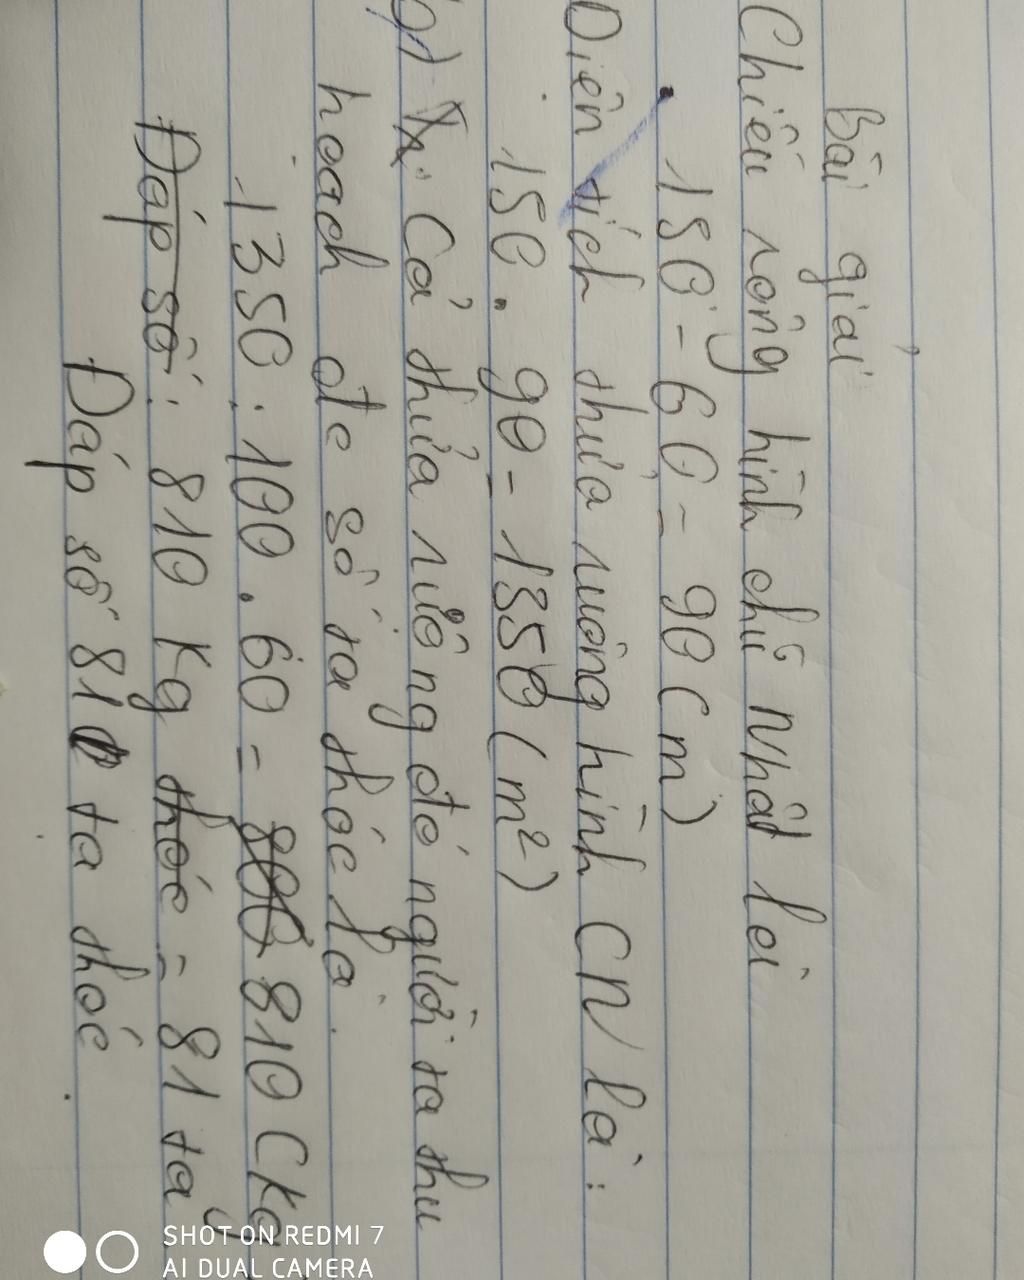 Bài giải
Chiều rông hình chữ nhât lèi
150 - 60 = 90 (m)
Diên tích thửa ruông hình CN là:
150. 90 = 1350 (m²)
b) Cả thửa ruông đó người ta thu
hoach đc số ta thóc là.
1350 : 100 . 60 = 810 (kg
Đáp số: 810 kg thóc = 81 ta
Đáp số 81 ta thóc
SHOT ON REDMI 7
AI DUAL CAMERA